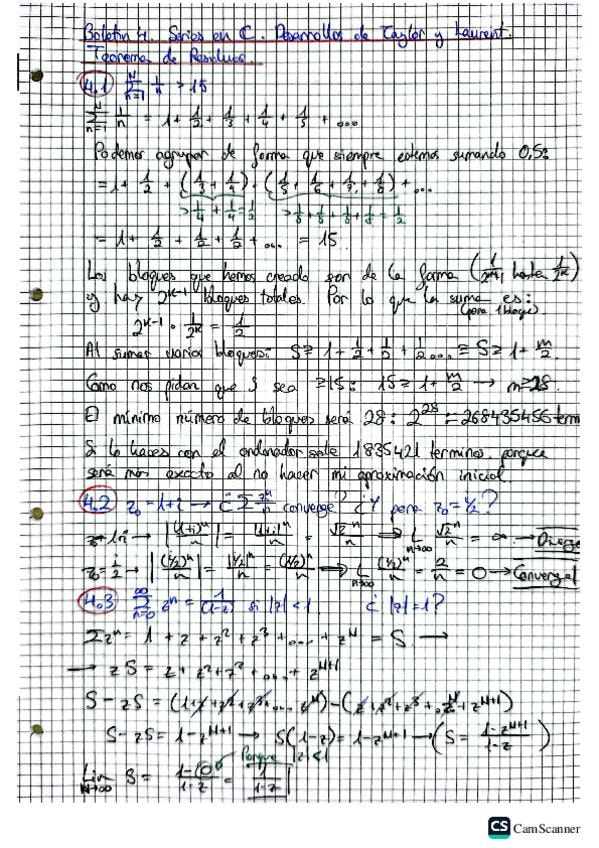 Boletín 4. Series en C. Desarrollos de Taylor y Laurent.
Teorema de Residuos.
4.1 Σ_{n=1}^{N} 1/n > 15
Σ_{n=1}^{N} 1/n = 1 + 1/2 + 1/3 + 1/4 + 1/5 + ...
Podemos agrupar de forma que siempre estemos sumando 0,5:
= 1 + 1/2 + (1/3 + 1/4) + (1/5 + 1/6 + 1/7 + 1/8) + ...
> 1/4 + 1/4 = 1/2 > 1/8 + 1/8 + 1/8 + 1/8 = 1/2
= 1 + 1/2 + 1/2 + 1/2 + ... = 15
Los bloques que hemos creado son de la forma ( hasta 1/2^k)
y hay 2^{k-1} bloques totales. Por lo que la suma es:
(para 1 bloque)
2^{k-1} · 1/2^k = 1/2
Al sumar varios bloques: S ≥ 1 + 1/2 + 1/2 + 1/2 ... = S ≥ 1 + m/2
Como nos pidan que S sea ≥ 15: 15 ≥ 1 + m/2 → m ≥ 28.
El mínimo número de bloques será 28: 2^28 = 268435456 term
Si lo haces con el ordenador sale 1835421 terminos. porque
será más exacto al no hacer mi aproximación inicial.
4.2 z₀ = 1+i → ¿Σ z^n/n converge? ¿Y para z₀ = i/2?
z = 1+i → |(1+i)^n/n| = |1+i|^n/n = √2^n/n ⇒ L_{n→∞} √2^n/n = ∞ → Diverge
z₀ = i/2 → |(i/2)^n/n| = |i/2|^n/n = (1/2)^n/n ⇒ L_{n→∞} (1/2)^n/n = = 0 → Converge!
4.3 Σ_{n=0}^{∞} z^n = 1/(1-z) si |z|<1 ¿|z|=1?
Σz^n = 1 + z + z² + z³ + ... + z^N = S →
→ zS = z + z² + z³ + ... + z^{N+1}
S - zS = (1+z+z²+z³+... z^N) - (z+z²+z³+...z^N+z^{N+1})
S - zS = 1 - z^{N+1} → S(1-z) = 1 - z^{N+1} → (S = (1-z^{N+1})/(1-z))
Porque |z|<1
Lim_{N→∞} S = (1-0)/(1-z) = 1/(1-z)
CS CamScanner